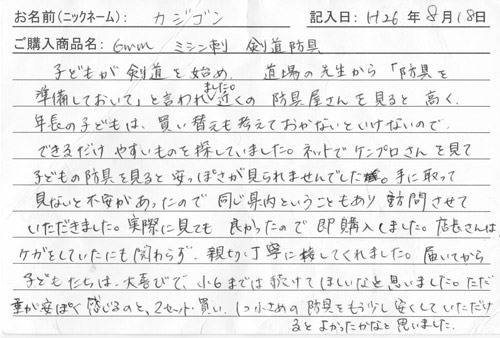 お名前(ニックネーム): カジゴン 記入日: H26年8月18日
ご購入商品名: 6mm ミシン刺 剣道防具
子どもが剣道を始め、道場の先生から「防具を
準備しておいて」と言われました。近くの防具屋さんを見ると高く、
年長の子どもは、買い替えも考えておかないといけないので、
できるだけやすいものを探していました。ネットでケンプロさんを見て
子どもの防具を見ると安っぽさが見られませんでした。手に取って
見ないと不安があったので同じ県内ということもあり訪問させて
いただきました。実際に見ても良かったので即購入しました。店長さんは、
ケガをしていたにも関わらず、親切、丁寧に接してくれました。届いてから
子どもたちは、大喜びで、小6までは続けてほしいなと思いました。ただ
が安ぽく感じるのと、2セット買い、1つ小さめの防具をもう少し安くしていただけ
るとよかったかなと思いました。